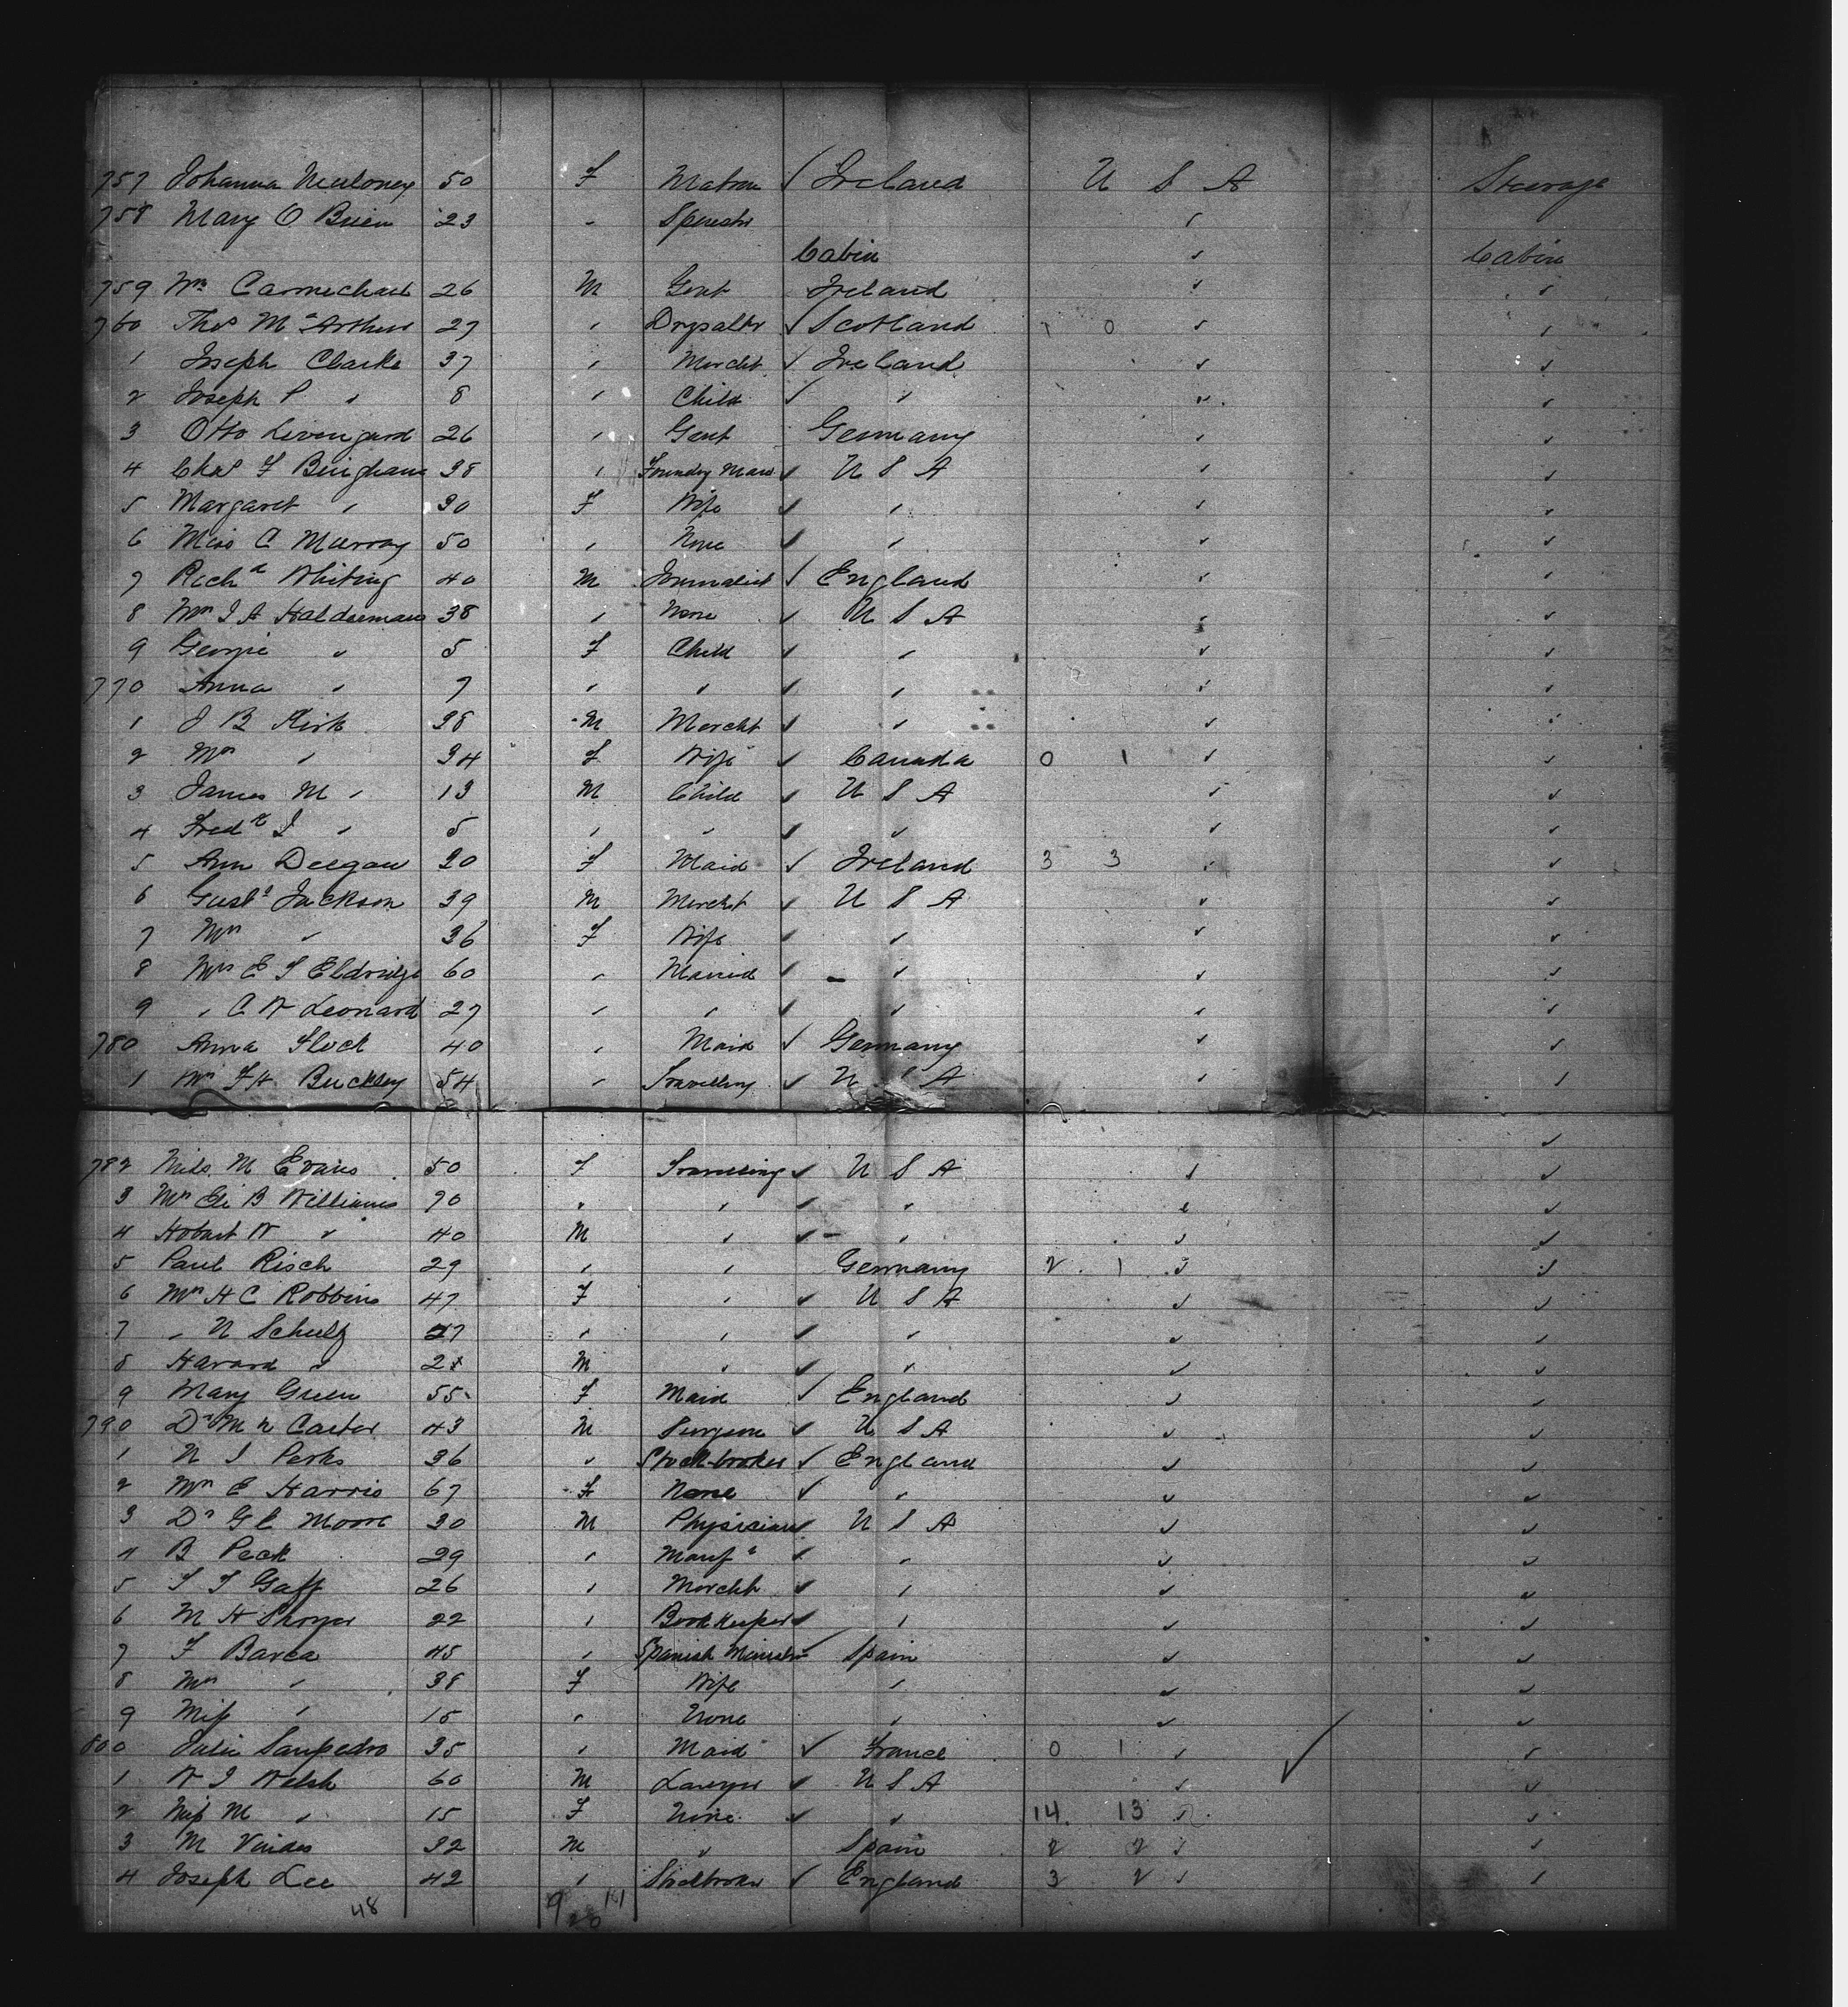 757 Johanna Muloney 50 F Matron √ Ireland U S A Steerage
758 Mary O Brien 23 " Spinster "
Cabin " Cabin
759 Wm Carmichael 26 M Gent Ireland " "
760 Thos McArthur 27 " Drysaltr √ Scotland 1 0 " "
1 Joseph Clarke 37 " Mercht √ Ireland " "
2 Joseph P " 8 " Child √ " " "
3 Otto Livengard 26 " Gent Germany " "
4 Chas F Bingham 38 " Foundry Man √ U S A " "
5 Margaret " 30 F Wife √ " " "
6 Miss C Murray 50 " None √ " " "
7 Richd Whiting 40 M Journalist √ England " "
8 Mrs J A Halderman 38 " None √ U S A " "
9 Georgie " 5 F Child √ " " "
770 Anna " 7 " " √ " " "
1 J B Kirk 38 M Mercht √ " " "
2 Mrs " 34 F Wife √ Canada 0 1 " "
3 James M " 13 M Child √ U S A " "
4 Fredk J " 5 " " √ " " "
5 Ann Deegan 20 F Maid √ Ireland 3 3 " "
6 Gusts Jackson 39 M Mercht √ U S A " "
7 Mrs " 36 F Wife √ " " "
8 Mrs E S Eldridge 60 " Married √ " " "
9 " C W Leonard 27 " " √ " " "
780 Anna Flock 40 " Maid √ Germany " "
1 Mrs F H Buckley 54 " Travelling √ U S A " "
782 Miss M Evans 50 F Travelling √ U S A " "
3 Mrs Eli B Williams 70 " " √ " " "
4 Hobart W " 40 M " √ " " "
5 Paul Risch 29 " " Germany 2 1 " "
6 Mrs H C Robbins 47 F " √ U S A " "
7 " N Schultz 27 " " √ " " "
8 Havard " 2 M " √ " " "
9 Mary Green 55 F Maid √ England " "
790 Dr M N Carter 43 M Surgeon √ U S A " "
1 N J Perks 36 " Stockbroker √ England " "
2 Mrs E Harris 67 F None √ " " "
3 Dr G E Moore 30 M Physician √ U S A " "
4 B Peck 29 " Manufr √ " " "
5 T T Gaff 26 " Mercht √ " " "
6 M H Shoyer 22 " Bookkeeper √ " " "
7 F Barca 45 " Spanish Minister √ Spain " "
8 Mrs " 38 F Wife " " "
9 Miss " 15 " None " " "
800 Julie Sanpedro 35 " Maid √ France 0 1 " "
1 W I Welsh 60 M Lawyer √ U S A " "
2 Miss M " 15 F None √ " 14 13 " "
3 M Vindas 32 M " Spain 2 2 " "
4 Joseph Lee 42 " Stockbroker √ England 3 2 " "
48 9 20 141